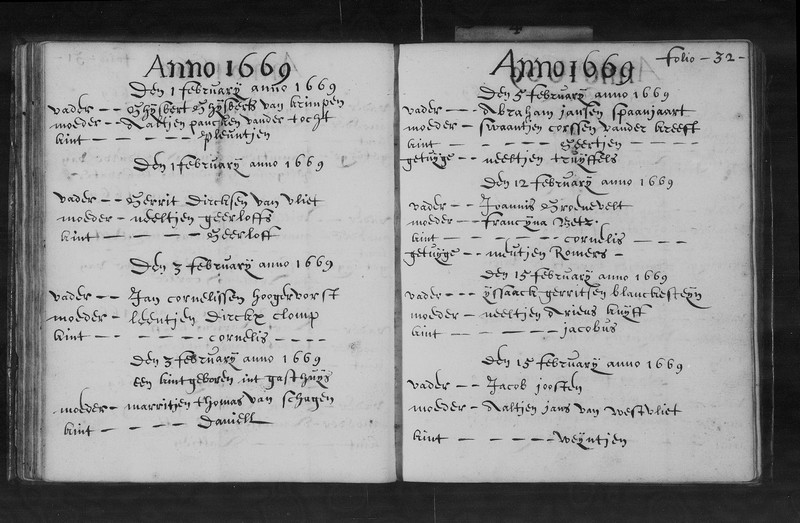 Anno 1669
Den 1 februarÿ anno 1669
vader -- Ghÿsbert Ghÿsbertsz van krimpen
moeder -- Aaltjen van der tocht
kint ---- pleuntjen
Den 1 februarÿ anno 1669
vader -- Gerrit Dircksen van vliet
moeder -- neeltjen geerloffs
kint ---- Geerloff
Den 3 februarÿ anno 1669
vader -- Jan cornelissen hoogervorst
moeder - leentjen Dirckx clomp
kint ---- cornelis ----
Den 3 februarÿ anno 1669
een kint geboren int gasthuÿs
moeder - marritjen thomas van schagen
kint ---- Daniell
Anno 1669
folio - 32 -
Den 5 februarÿ anno 1669
vader -- Abraham jansen spaanjaart
moeder -- swaantjen corssen vander kreeft
kint ---- Geertjen ----
getuÿge -- neeltjen truÿffels
Den 12 februarÿ anno 1669
vader -- Joannis Groenevelt
moeder -- francÿna
kint ---- cornelis ----
getuÿge -- meutjen Romers -
Den 15 februarÿ anno 1669
vader -- ÿssaack gerritsen blanckesteÿn
moeder - neeltjen Ariens kuÿff
kint ---- jacobus
Den 15 februarÿ anno 1669
vader -- Jacob joosten
moeder - Aaltjen jans van westvliet
kint ---- weÿntjen